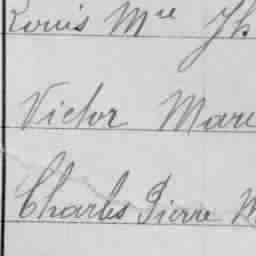 Louis Mie Jh
Victor Marc
Charles Pierre M